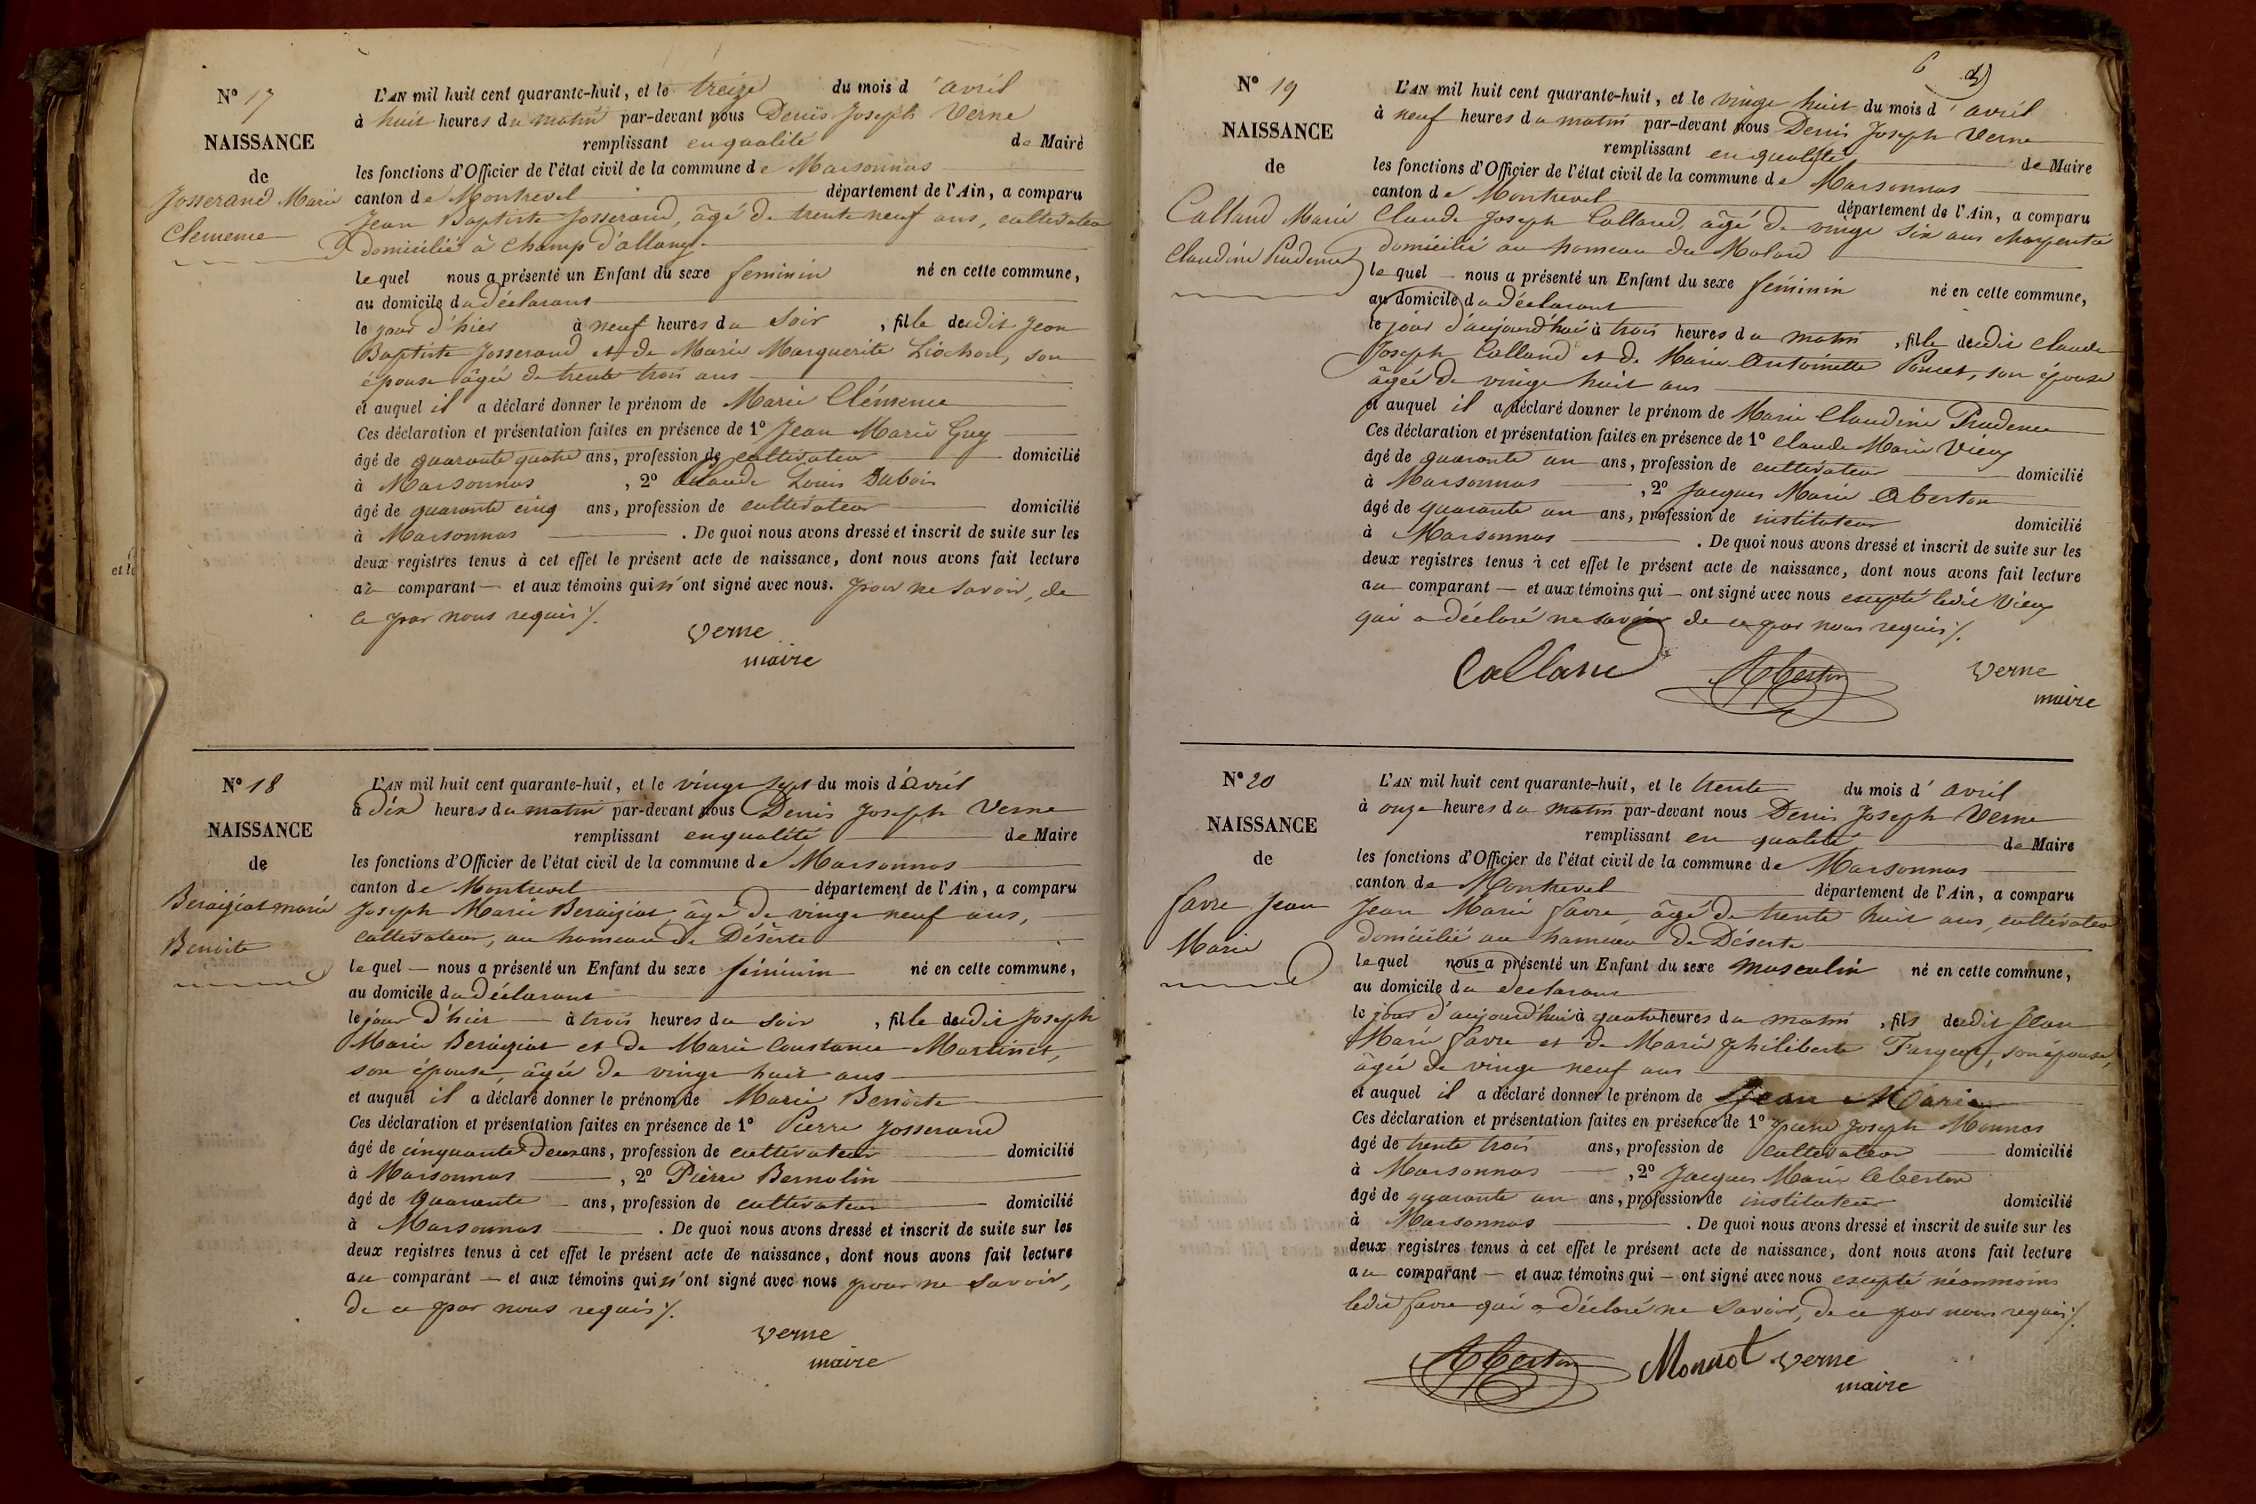 N° 17
NAISSANCE
de
Josserand Marie
Clémence
L'AN mil huit cent quarante-huit, et le treize du mois d'avril
à huit heures du matin par-devant nous Denis Joseph Verne
remplissant en qualité de Maire
les fonctions d'Officier de l'état civil de la commune de Marsonnas
canton de Montrevel département de l'Ain, a comparu
Jean Baptiste Josserand, âgé de trente neuf ans, cultivateur
domicilié à Champ d'allong
lequel nous a présenté un Enfant du sexe feminin né en cette commune,
au domicile du déclarant
le jour d'hier à neuf heures du soir, fille dudit Jean
Baptiste Josserand et de Marie Marguerite Liochon, son
épouse âgée de trente trois ans
et auquel il a déclaré donner le prénom de Marie Clémence
Ces déclaration et présentation faites en présence de 1° Jean Marie Guy
âgé de quarante quatre ans, profession de cultivateur domicilié
à Marsonnas, 2° Claude Louis Dubois
âgé de quarante cinq ans, profession de cultivateur domicilié
à Marsonnas. De quoi nous avons dressé et inscrit de suite sur les
deux registres tenus à cet effet le présent acte de naissance, dont nous avons fait lecture
au comparant et aux témoins qui n'ont signé avec nous. pour ne savoir, de
ce par nous requis ./.
Verne
maire
N° 18
NAISSANCE
de
Beraiziat marie
Benoite
L'AN mil huit cent quarante-huit, et le vingt sept du mois d'avril
à dix heures du matin par-devant nous Denis Joseph Verne
remplissant en qualité de Maire
les fonctions d'Officier de l'état civil de la commune de Marsonnas
canton de Montrevel département de l'Ain, a comparu
Joseph Marie Beraiziat, âgé de vingt neuf ans,
cultivateur, au hameau de Déserte
lequel nous a présenté un Enfant du sexe féminin né en cette commune,
au domicile du déclarant
le jour d'hier à trois heures du soir, fille dudit Joseph
Marie Beraiziat et de Marie Constance Martinet,
son épouse, âgée de vingt huit ans
et auquel il a déclaré donner le prénom de Marie Benoite
Ces déclaration et présentation faites en présence de 1° Pierre Josserand
âgé de cinquante deux ans, profession de cultivateur domicilié
à Marsonnas, 2° Pierre Bernolin
âgé de quarante ans, profession de cultivateur domicilié
à Marsonnas. De quoi nous avons dressé et inscrit de suite sur les
deux registres tenus à cet effet le présent acte de naissance, dont nous avons fait lecture
au comparant et aux témoins qui n'ont signé avec nous pour ne savoir,
de ce par nous requis ./.
Verne
maire
6
N° 19
NAISSANCE
de
Calland Marie
Claudine Prudence
L'AN mil huit cent quarante-huit, et le vingt huit du mois d'avril
à neuf heures du matin par-devant nous Denis Joseph Verne
remplissant en qualité de Maire
les fonctions d'Officier de l'état civil de la commune de Marsonnas
canton de Montrevel département de l'Ain, a comparu
Claude Joseph Calland, âgé de vingt six ans charpentier
domicilié au hameau du Molard
lequel nous a présenté un Enfant du sexe féminin né en cette commune,
au domicile du déclarant
le jour d'aujourd'hui à trois heures du matin, fille dudit Claude
Joseph Calland et de Marie Antoinette Poncet, son épouse
âgée de vingt huit ans
et auquel il a déclaré donner le prénom de Marie Claudine Prudence
Ces déclaration et présentation faites en présence de 1° Claude Marie Vieux
âgé de quarante un ans, profession de cultivateur domicilié
à Marsonnas, 2° Jacques Marie Aberton
âgé de quarante un ans, profession de instituteur domicilié
à Marsonnas. De quoi nous avons dressé et inscrit de suite sur les
deux registres tenus à cet effet le présent acte de naissance, dont nous avons fait lecture
au comparant et aux témoins qui ont signé avec nous excepté ledit Vieux
qui a déclaré ne savoir de ce par nous requis ./.
Calland Aberton Verne
maire
N° 20
NAISSANCE
de
Favre Jean
Marie
L'AN mil huit cent quarante-huit, et le trente du mois d'avril
à onze heures du matin par-devant nous Denis Joseph Verne
remplissant en qualité de Maire
les fonctions d'Officier de l'état civil de la commune de Marsonnas
canton de Montrevel département de l'Ain, a comparu
Jean Marie Favre, âgé de trente huit ans, cultivateur
domicilié au hameau de Déserte
lequel nous a présenté un Enfant du sexe masculin né en cette commune,
au domicile du déclarant
le jour d'aujourd'hui à quatre heures du matin, fils dudit Jean
Marie Favre et de Marie Philiberte, son épouse,
âgée de vingt neuf ans
et auquel il a déclaré donner le prénom de Jean Marie
Ces déclaration et présentation faites en présence de 1° Pierre Joseph Monnos
âgé de trente trois ans, profession de cultivateur domicilié
à Marsonnas, 2° Jacques Marie Aberton
âgé de quarante un ans, profession de instituteur domicilié
à Marsonnas. De quoi nous avons dressé et inscrit de suite sur les
deux registres tenus à cet effet le présent acte de naissance, dont nous avons fait lecture
au comparant et aux témoins qui ont signé avec nous excepté néanmoins
ledit Favre qui a déclaré ne savoir, de ce par nous requis ./.
Aberton Monnot Verne
maire